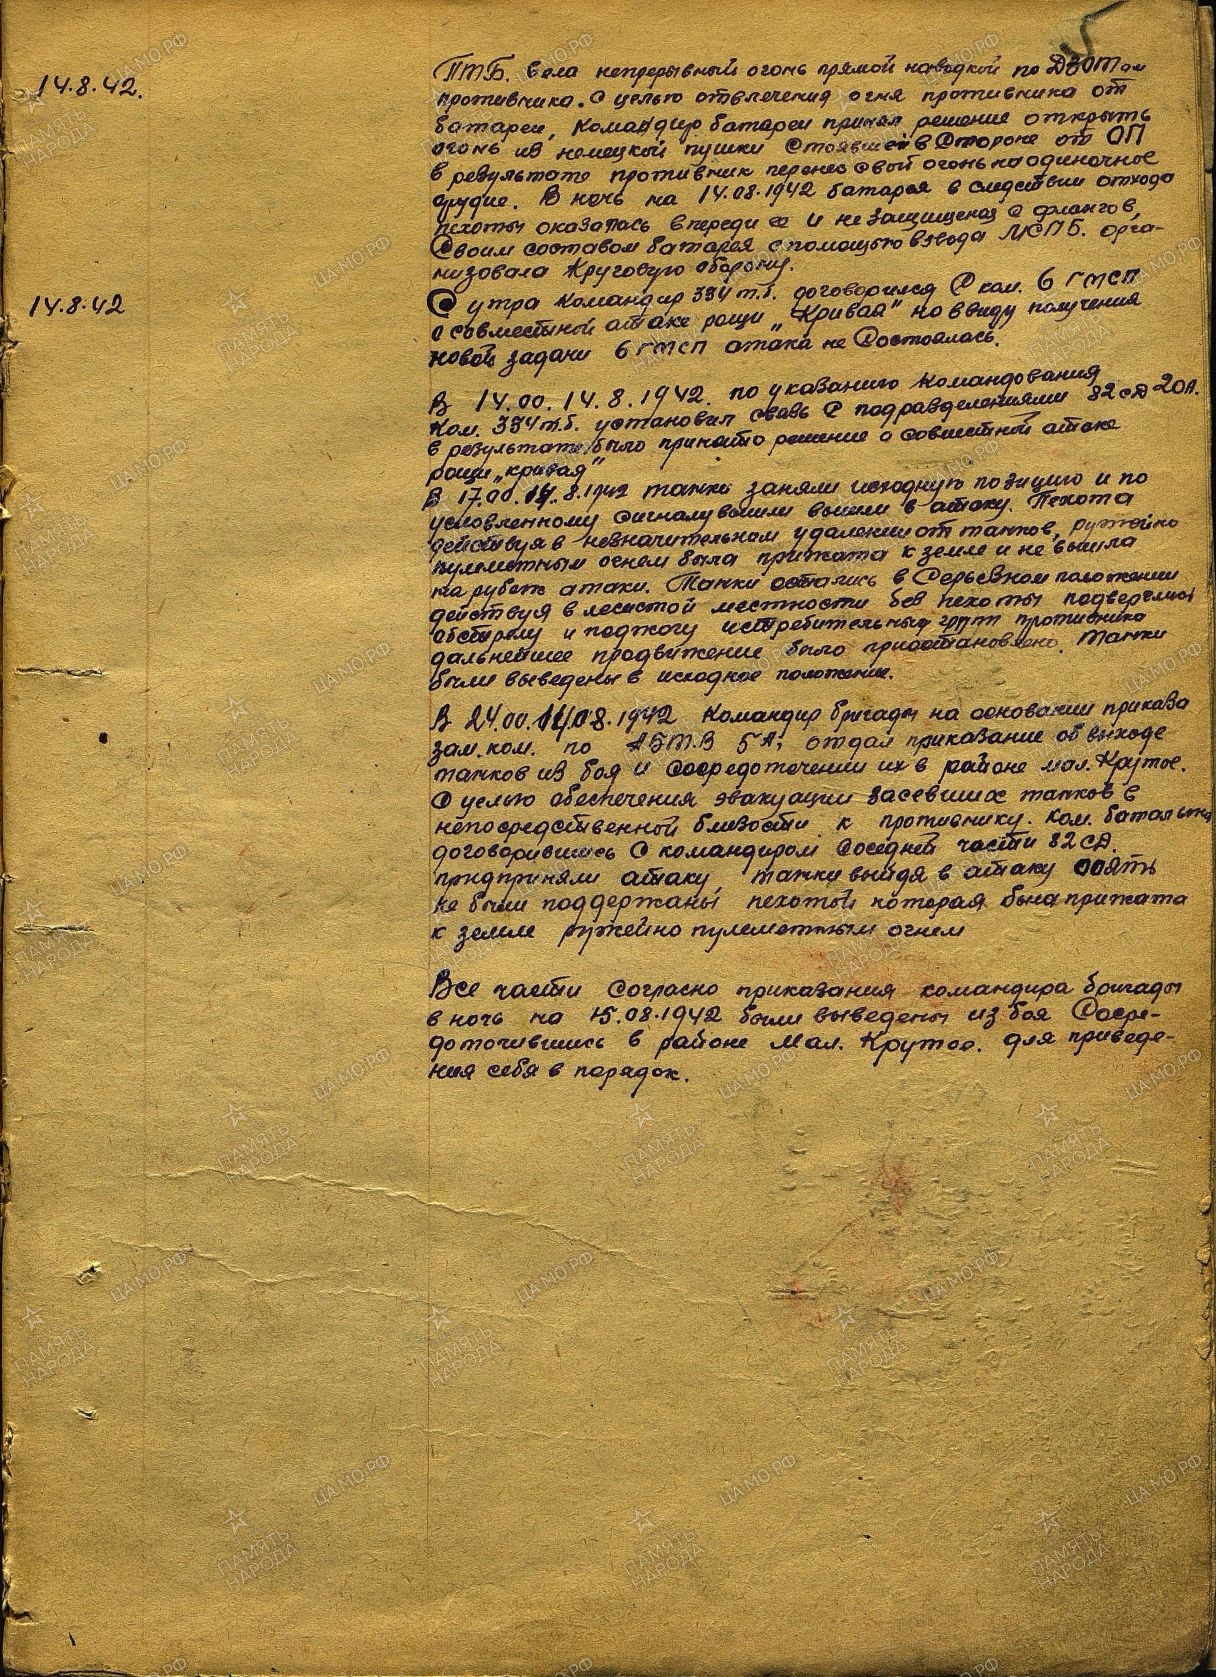 5
14.8.42.
ПТБ. вела непрерывный огонь прямой наводкой по ДЗОТам
противника. С целью отвлечения огня противника от
батареи, командир батареи принял решение открыть
огонь из немецкой пушки стоявшей в стороне от ОП
в результате противник перенес свой огонь на одиночное
орудие. В ночь на 14.08.1942 батарея в следствии отхода
пехоты оказалась впереди ее и не защищеная с флангов,
Своим составом батарея с помощью взвода МСПБ. орга-
низовала круговую оборону.
14.8.42
С утра командир 394 т.б. договорился с ком. 6 ГМСП
о совместной атаке рощи „Кривая" но ввиду получения
новой задачи 6 ГМСП атака не состоялась.
В 14.00. 14.8.1942. по указанию командования
Ком. 394 т.б. установил связь с подразделениями 82 СД 20А.
в результате было принято решение о совместной атаке
рощи „кривая"
В 17.00. 14.8.1942 танки заняли исходную позицию и по
условленному сигналу вышли в атаку. Пехота
действуя в незначительном удалении от танков, ружейно
пулеметным огнем была прижата к земле и не вышла
на рубеж атаки. Танки остались в серьезном положении
действуя в лесистой местности без пехоты
обстрелу и поджогу истребительных групп противника
дальнейшее продвижение было приостановлено. Танки
были выведены в исходное положение.
В 24.00. 14.08.1942 Командир бригады на основании приказа
зам. ком. по АБТВ 5 А, отдал приказание об выходе
танков из боя и сосредоточении их в районе мал. Крутое.
С целью обеспечения эвакуации засевших танков в
непосредственной близости к противнику. ком. батальона
договорившись с командиром соседней части 82 СД.
предприняли атаку, танки выйдя в атаку опять
не были поддержаны пехотой которая была прижата
к земле ружейно пулеметным огнем
Все части согласно приказания командира бригады
в ночь на 15.08.1942 были выведены из боя Сосре-
доточившись в районе Мал. Крутое. для приведе-
ния себя в порядок.